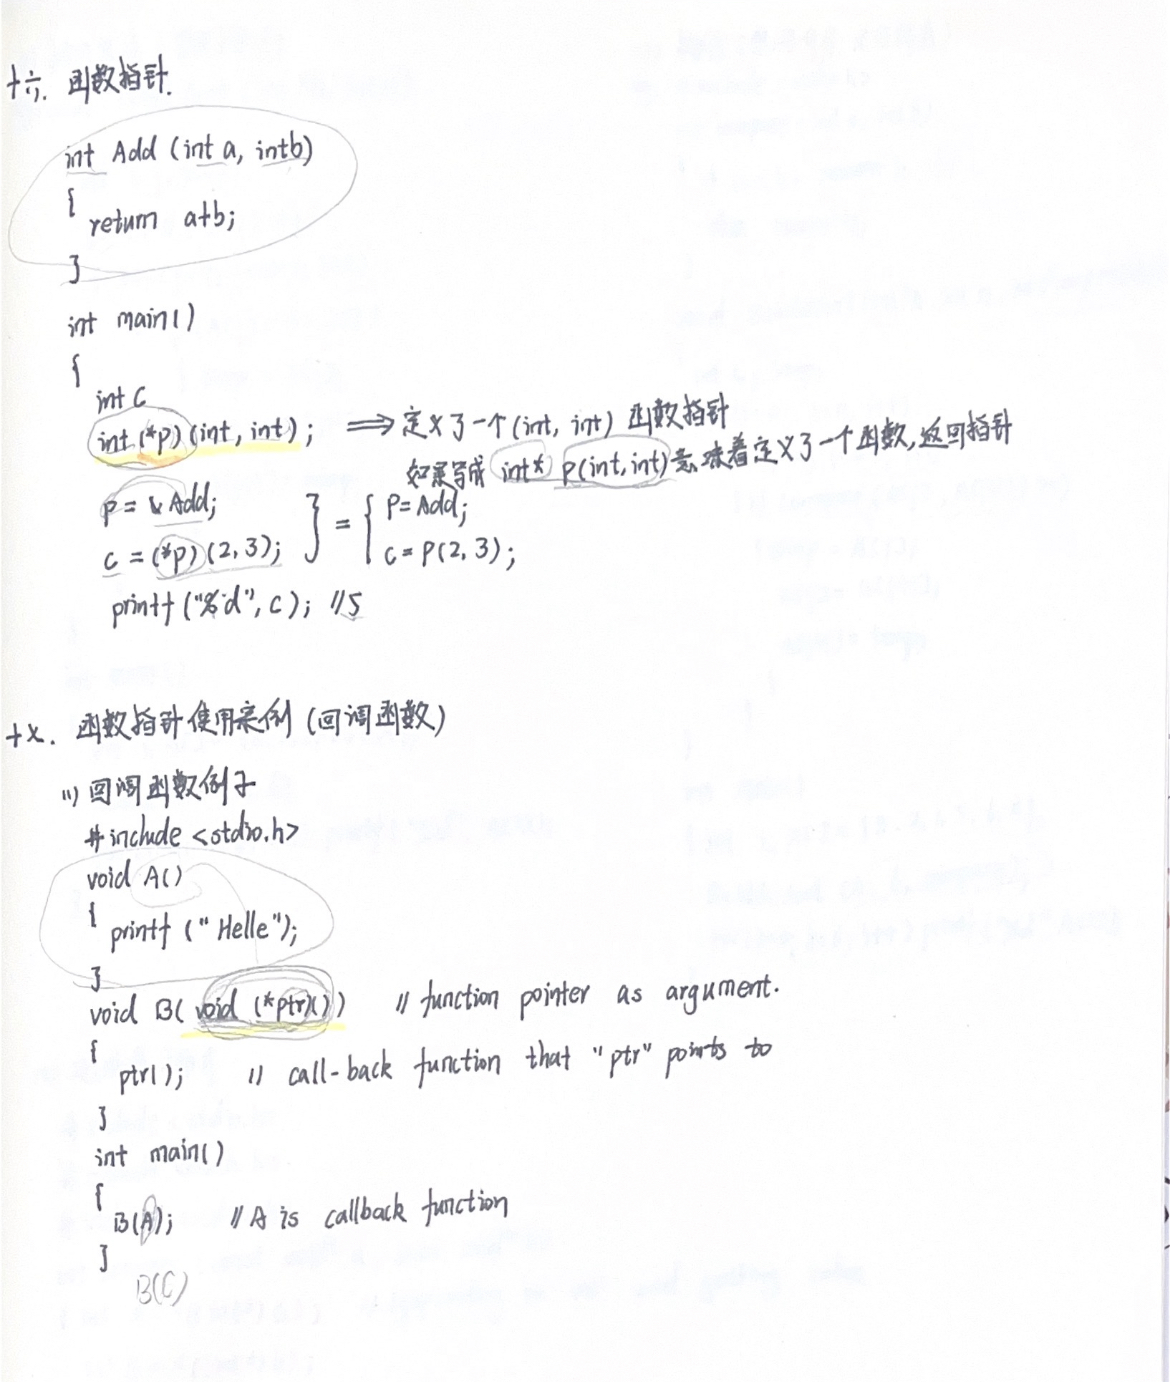 十六. 函数指针.
int Add (int a, intb)
{
return a+b;
}
int main()
{
int c
int (*p) (int, int); ⟹ 定义了一个(int, int) 函数指针
如果写成 int* p(int,int)意味着定义了一个函数,返回指针
p = & Add; } = { P=Add;
c = (*p) (2,3); c = P(2,3);
printf ("%d", c); //5
十七. 函数指针使用案例 (回调函数)
(1) 回调函数例子
#include <stdio.h>
void A()
{
printf ("Helle");
}
void B( void (*ptr)()) // function pointer as argument.
{
ptr(); // call-back function that "ptr" points to
}
int main()
{
B(A); // A is callback function
}
B(C)